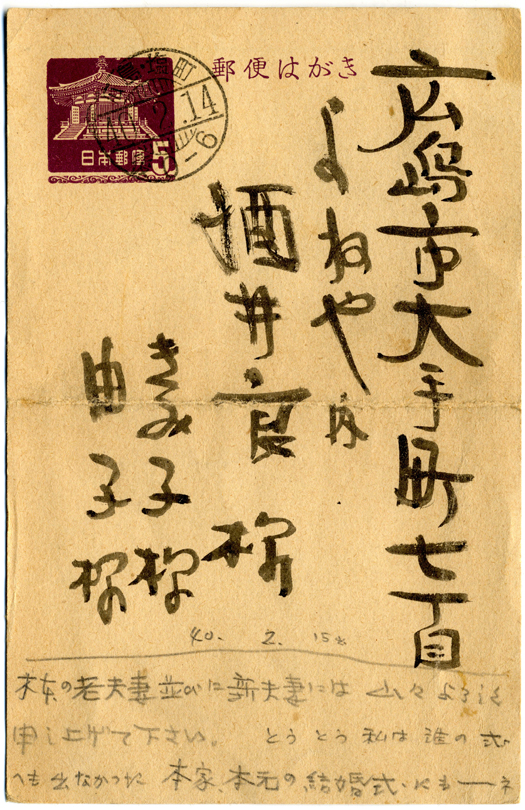 郵便はがき
日本郵便
5
町
2.14
-6
広島市大手町七丁目
よねや内
酒井良 様
きみ子様
由子様
40. 2. 15
の老夫妻並びに新夫妻には 山々よろしく
申し上げて下さい。 とうとう私は誰の式
へも出なかった 本家、本元の結婚式